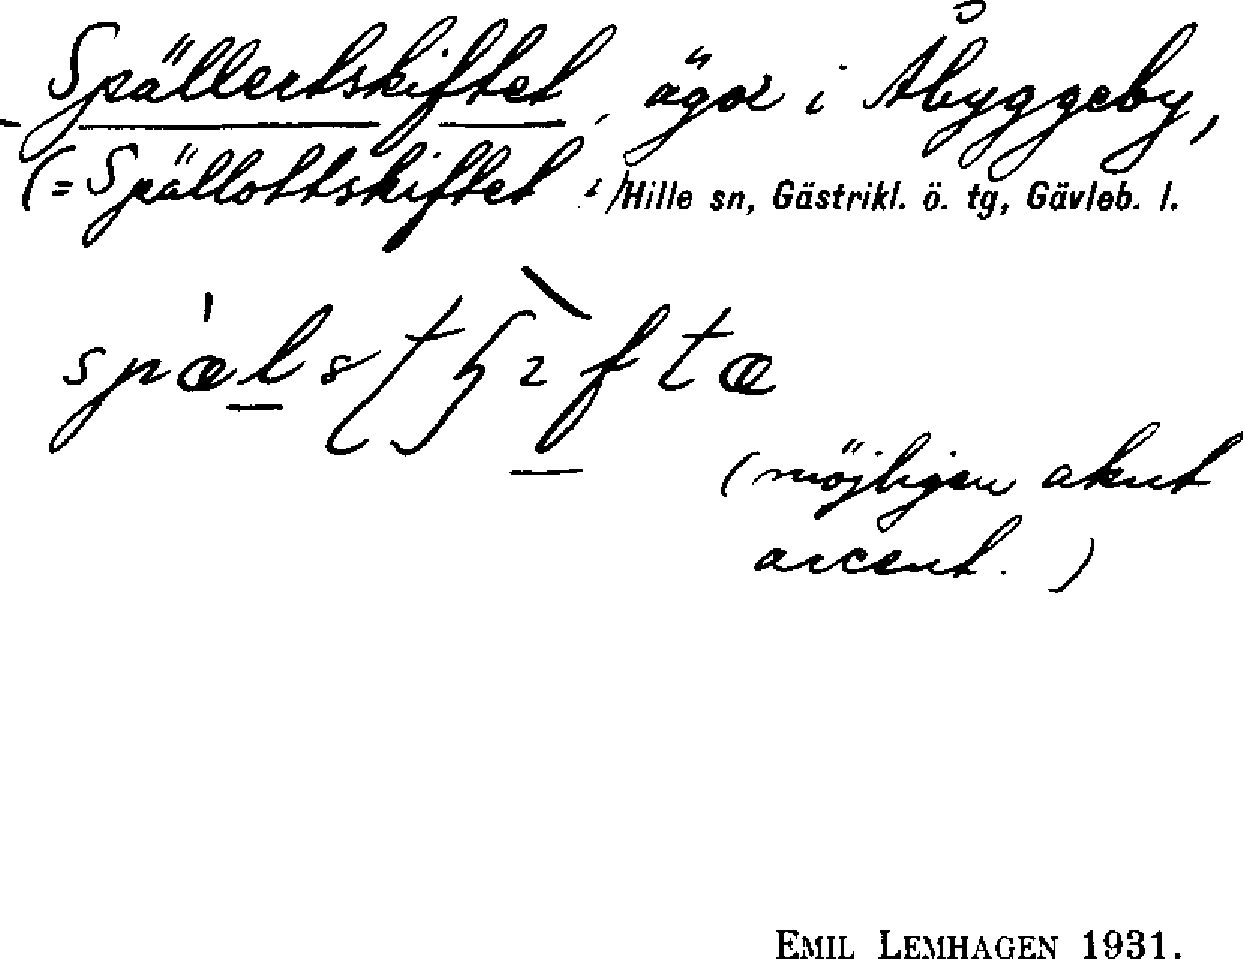 Spällertskiftet, ägor i Åbyggeby,
(= Spällottskiftet i) Hille sn, Gästrikl. ö. tg, Gävleb. l.
(möjligen akut
accent.)
EMIL LEMHAGEN 1931.